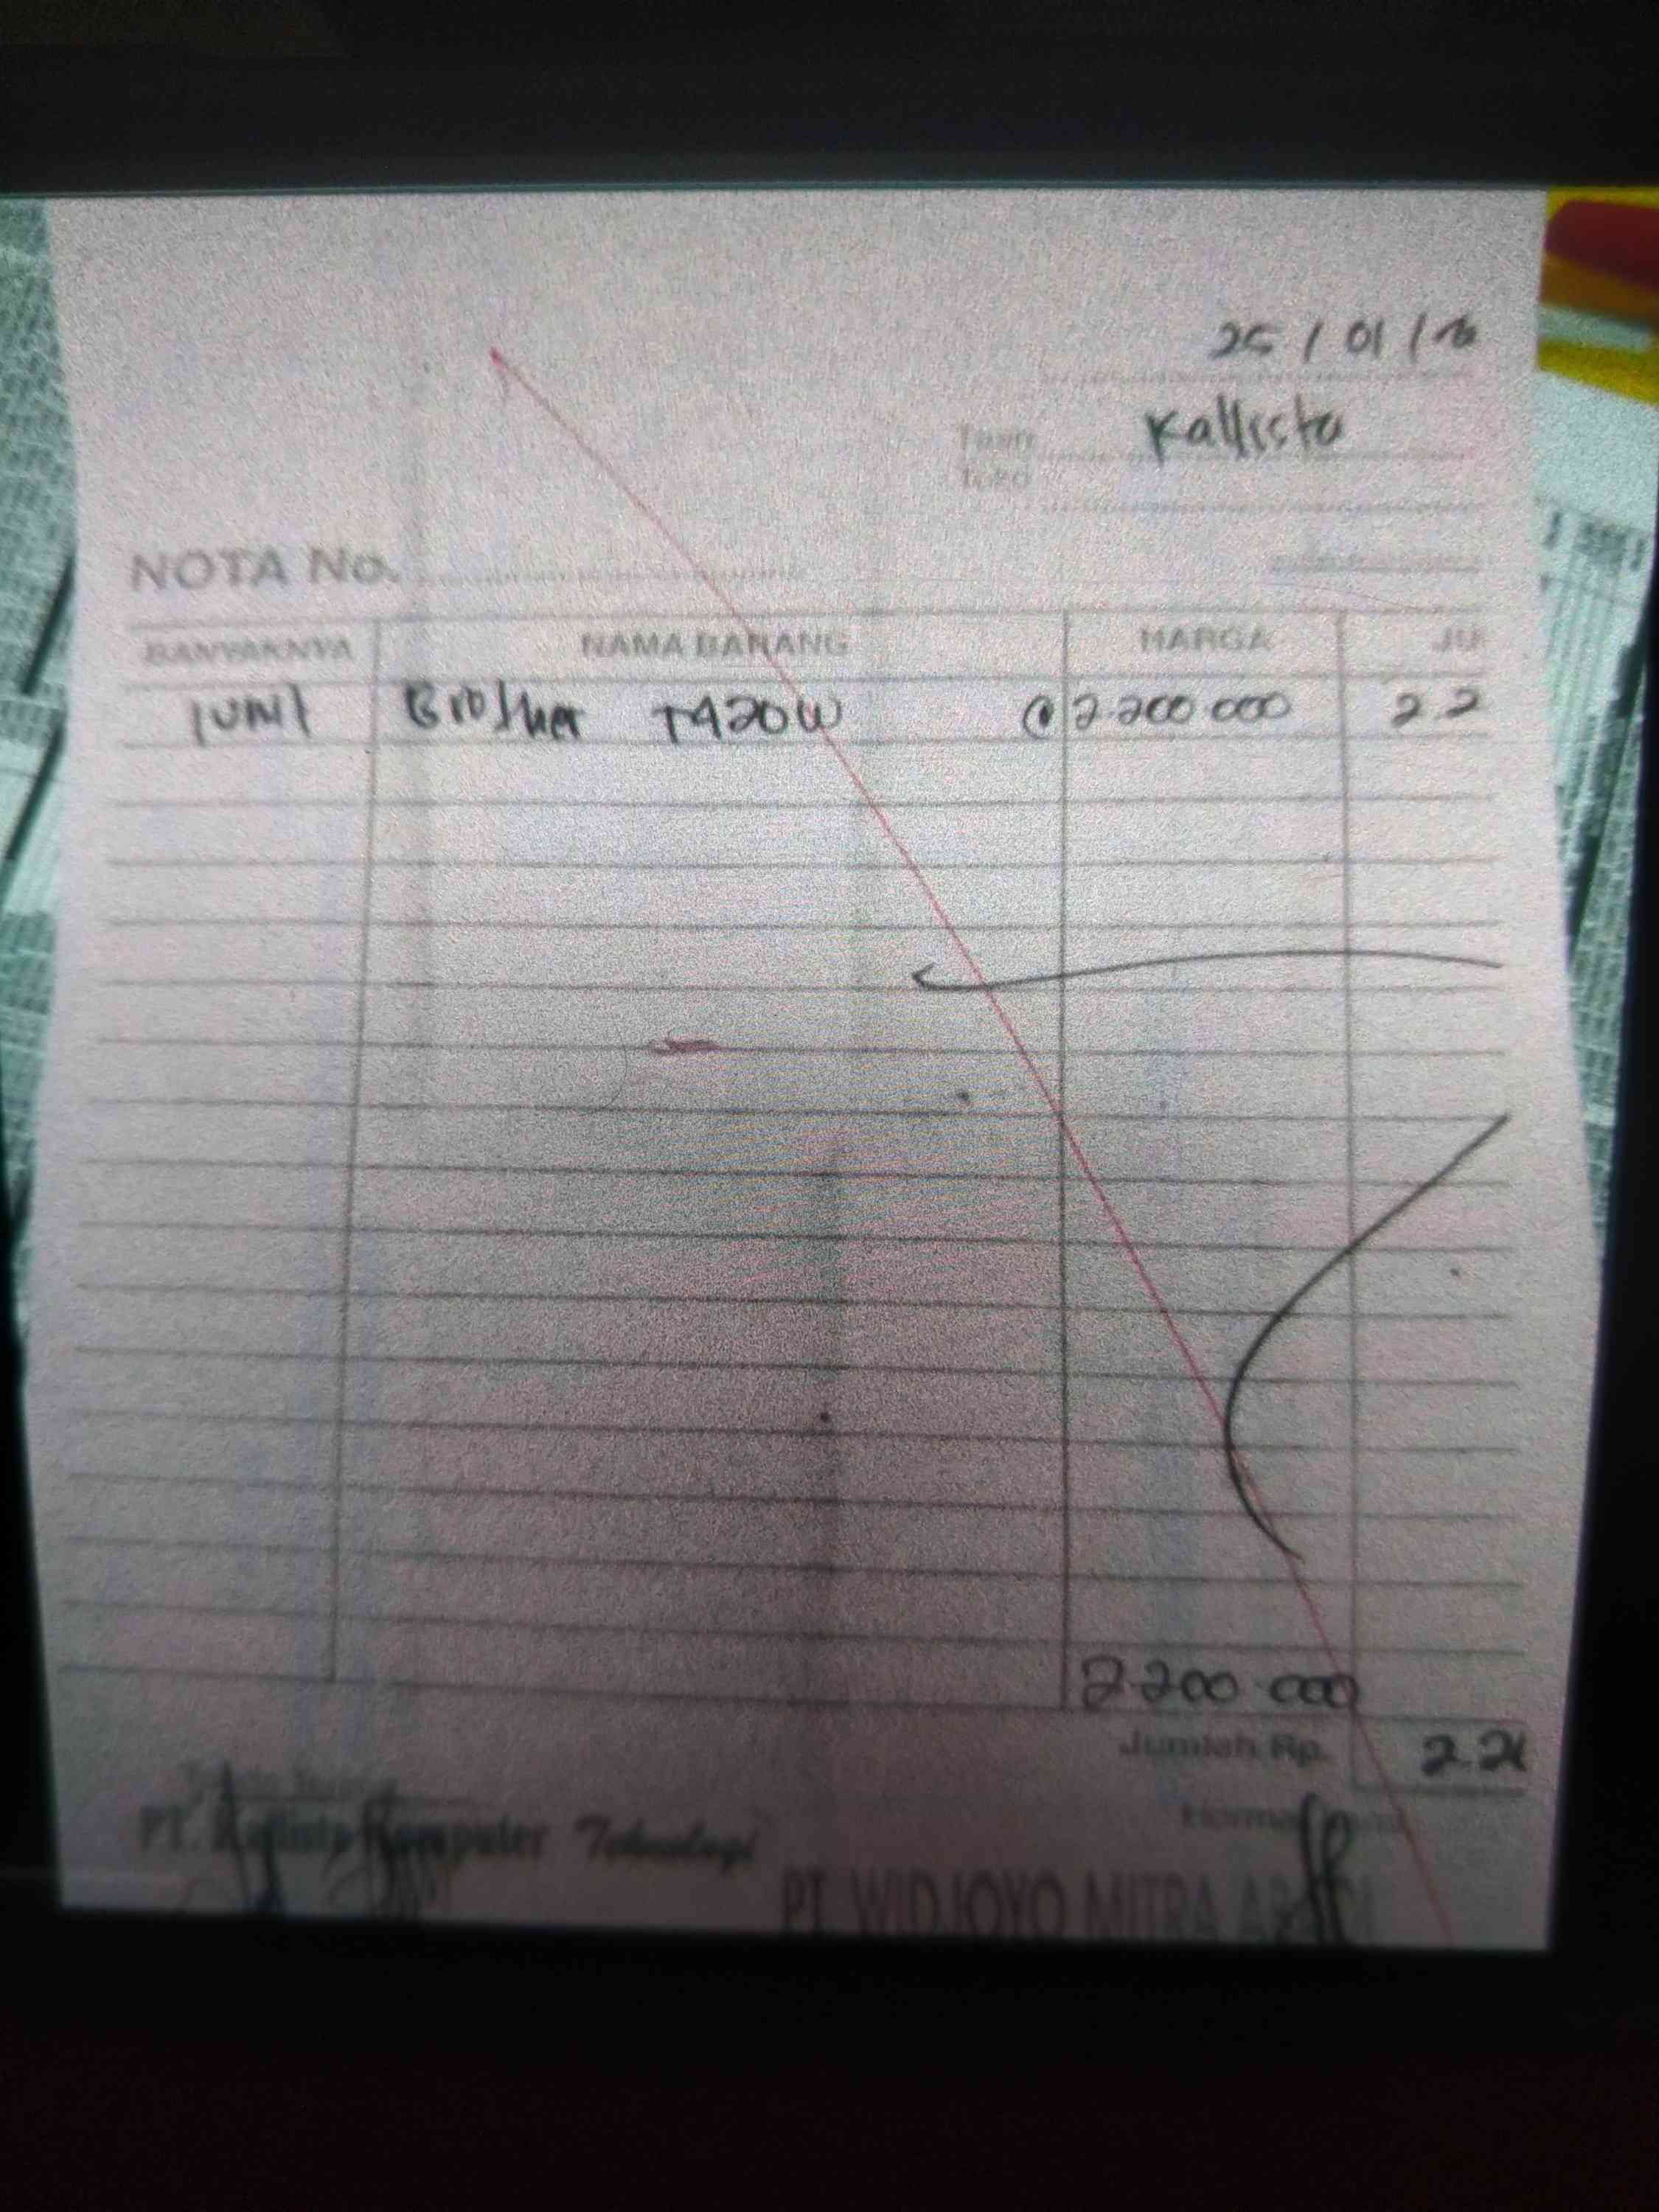 25 / 01 /
Tuan Kallista
Toko
NOTA No.
BANYAKNYA NAMA BARANG HARGA JU
1 UNIT Brother T420W @ 2.200.000 2.2
2.200.000
Jumlah Rp. 2.2
PT. Komputer Teknologi
PT. WIDJOYO MITRA